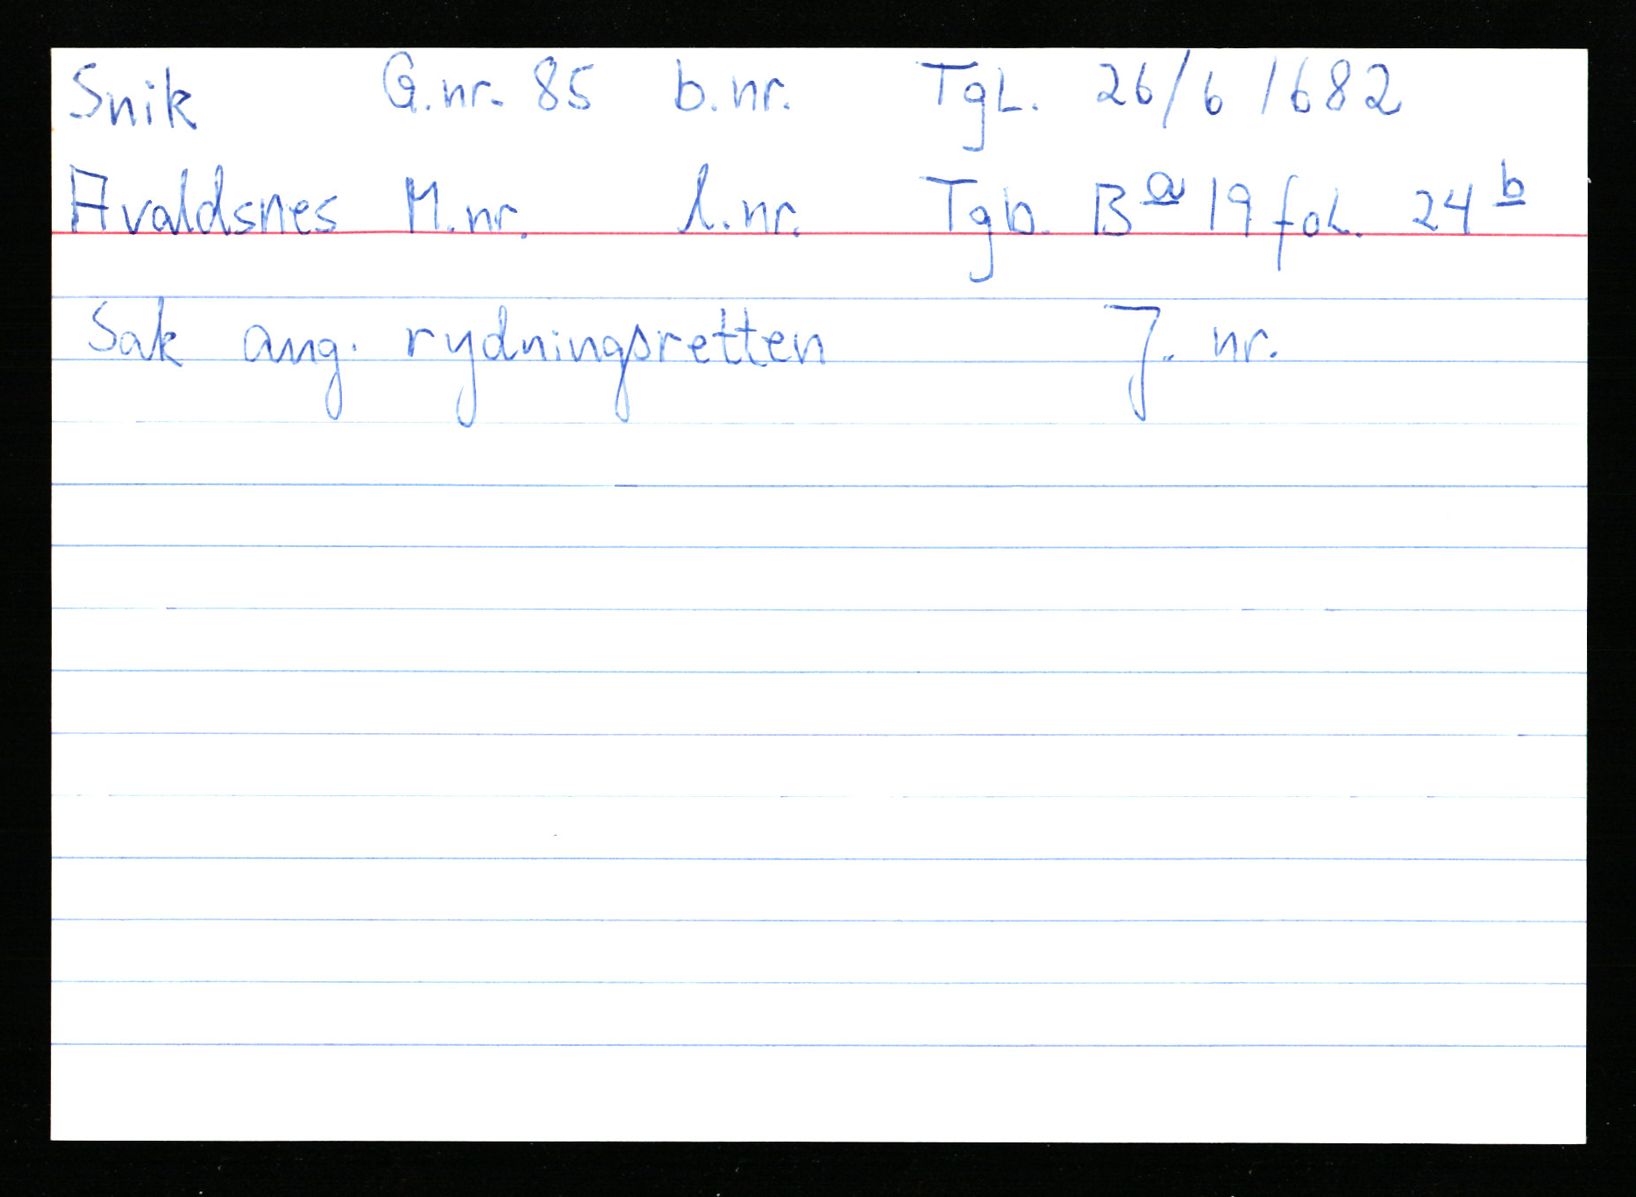 Snik G.nr. 85 b.nr. Tgl. 26/6 1682
Avaldsnes M.nr. l.nr. Tgb. B a 19 fol. 24 b
Sak ang. rydningsretten J. nr.